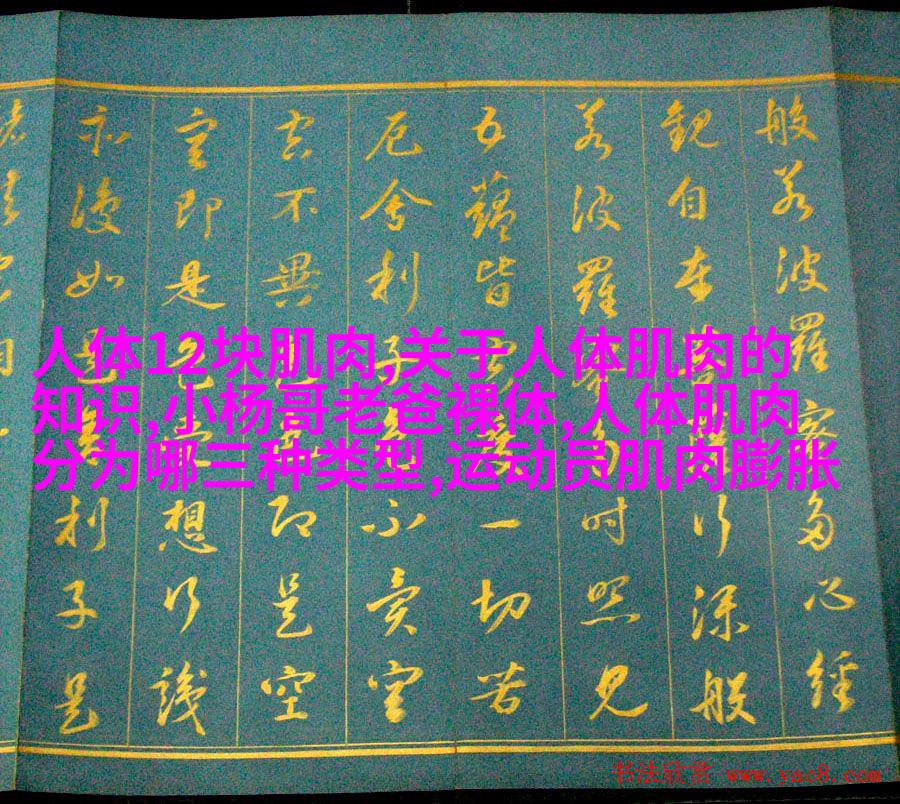 般若波羅蜜多心經
觀自在行深般
若波羅多時照見
五蘊皆空度一切苦
厄舍利子色不異空
空不異色即是空
空即是色受想行識
亦復如是舍利子是
人体12块肌肉,关于人体肌肉的
知识,小杨哥老爸裸体,人体肌肉
分为哪三种类型,运动员肌肉膨胀
书法欣赏 www.yac8.com